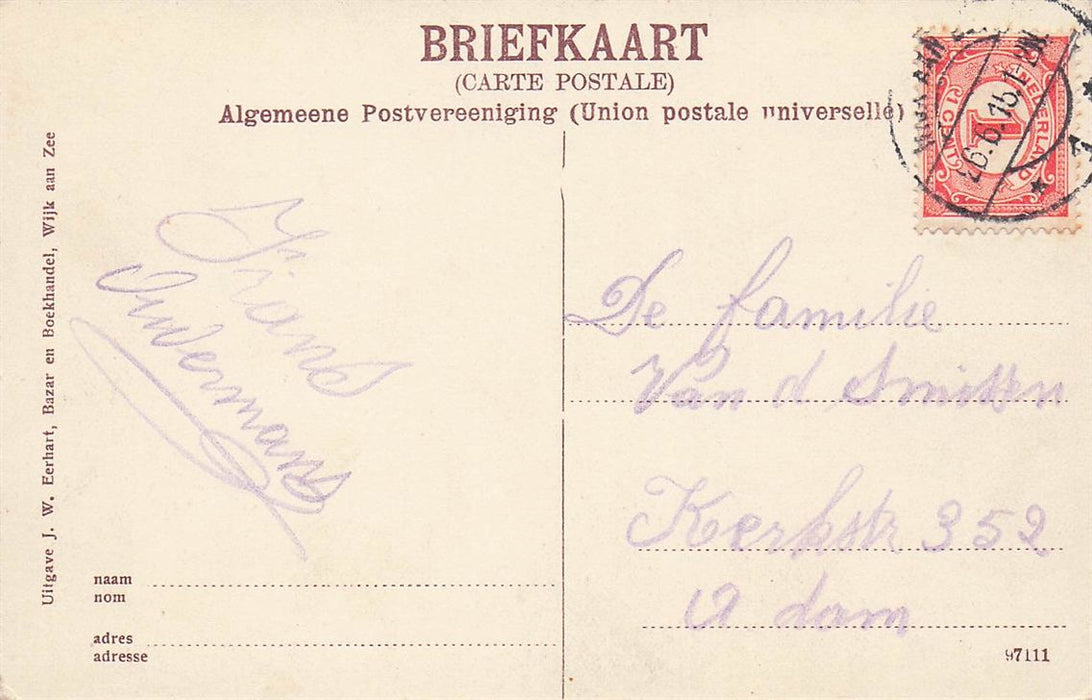 BRIEFKAART
(CARTE POSTALE)
Algemeene Postvereeniging (Union postale universelle)
Uitgave J. W. Eerhart, Bazar en Boekhandel, Wijk aan Zee
NEDERLAND
1
1 CENT
26.6.15.1-2N
1
Frans
De familie
Van d Smitten
Kerkstr 352
A dam
naam
nom
adres
adresse
97111